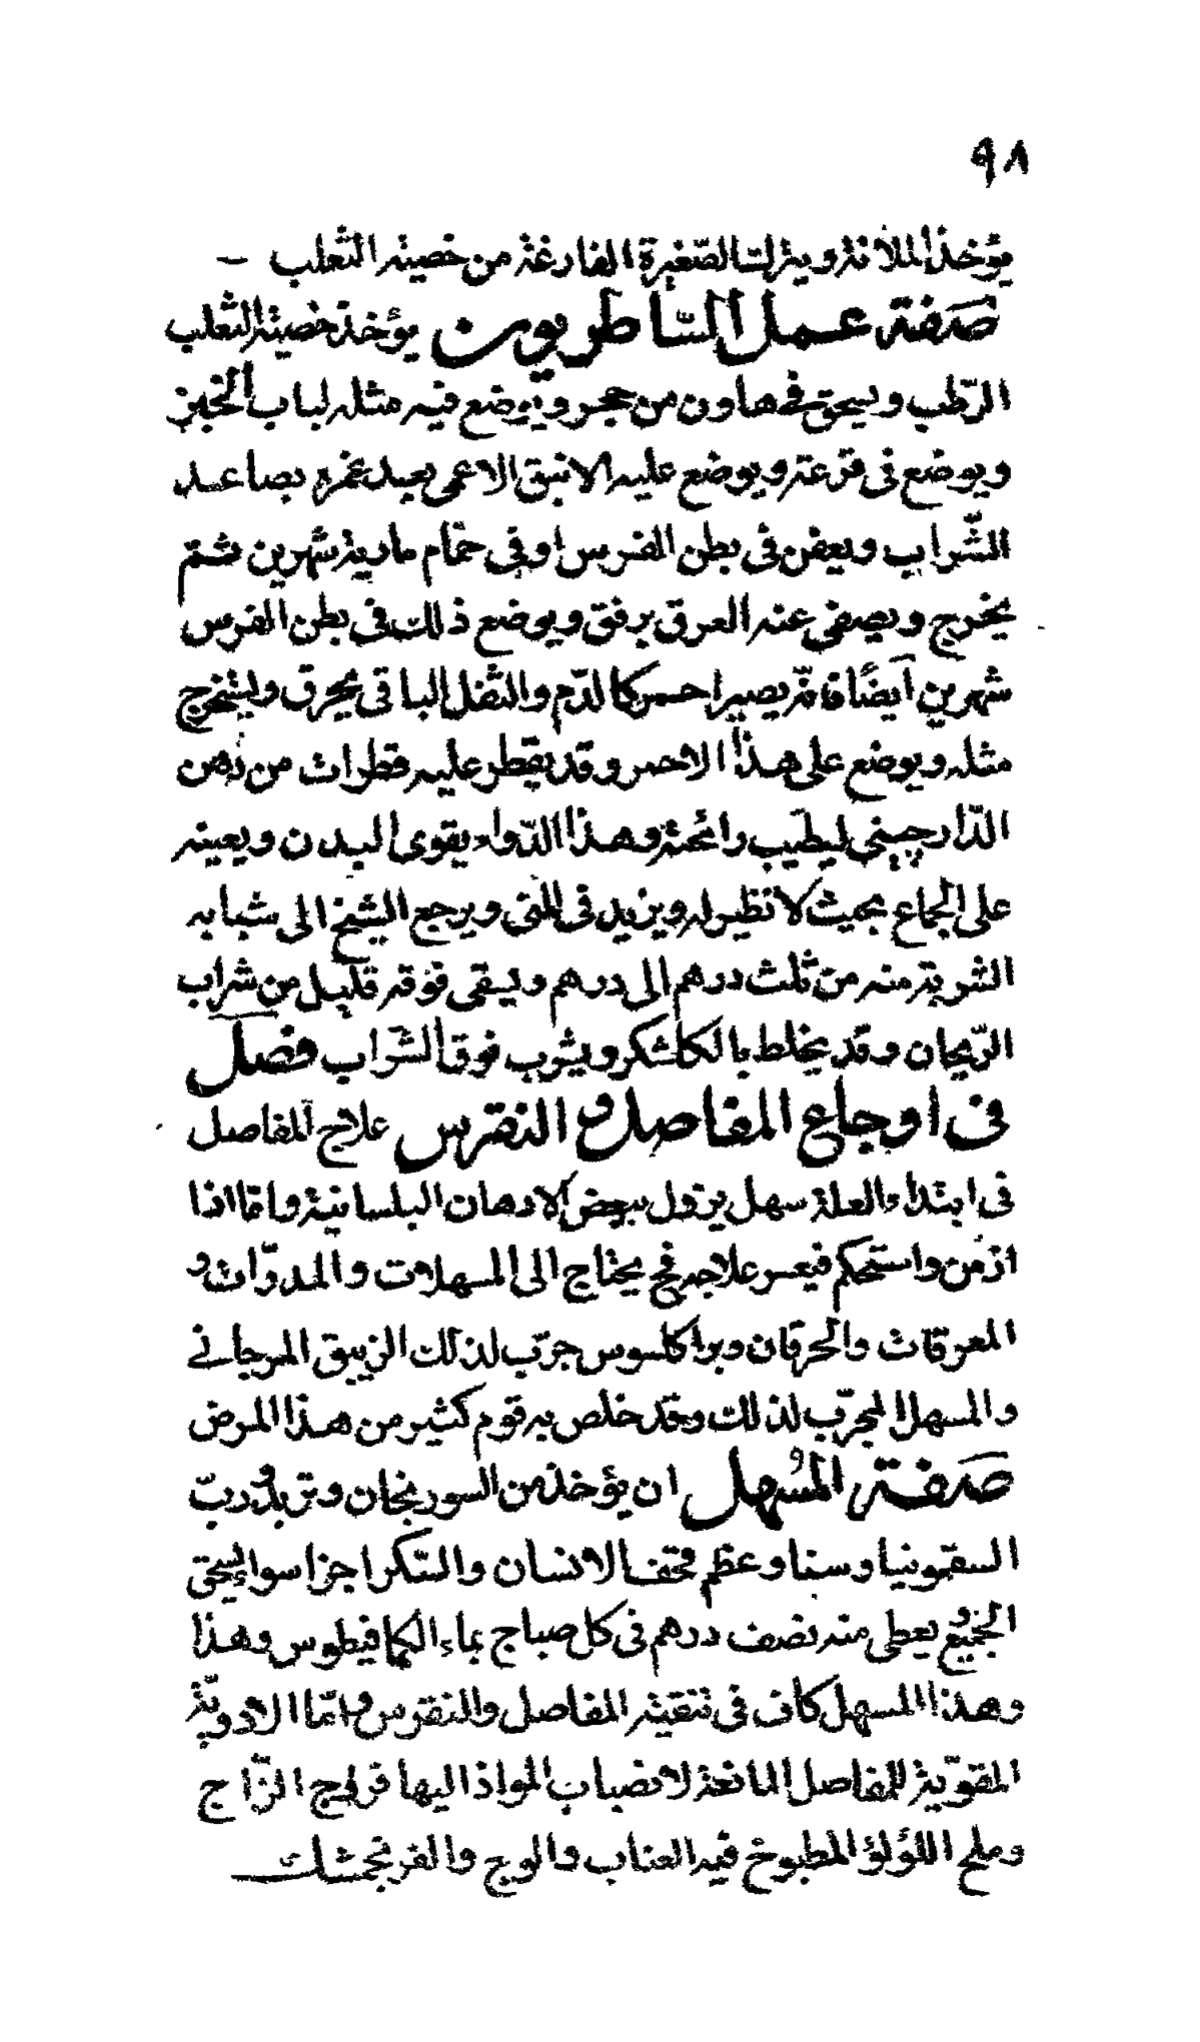 ٩٨
يؤخذ الملانة ويترك الصّغيرة الفارغة من خصية الثعلب
صَفة عمل السّاطريون يؤخذ خصية الثعلب
الرّطب ويسحق في هاون من حجر ويوضع فيه مثله لباب الخبز
ويوضع في قرعة ويوضع عليه الانبيق الاعمى بعد غمره بصاعد
الشّراب ويعفن في بطن الفرس او في حمّام مارية شهرين ثم
يخرج ويصفى عنه العرق برفق ويوضع ذلك في بطن الفرس
شهرين أيضًا فانّه يصير احمر كالدّم والثفل الباقي يحرق ويستخرج
مثله ويوضع على هذا الاحمر وقد يقطر عليه قطرات من دهن
الدّارچيني ليطيب رائحته وهذا الدّواء يقوى البدن ويعينه
على الجماع بحيث لا نظير له ويزيد في المنى ويرجع الشيخ الى شبابه
الشربة منه من ثلث درهم الى درهم ويسقى فوقه قليل من شراب
الرّيحان وقد يخلط بالكلشكر ويشرب فوق الشّراب فصل
في اوجاع المفاصل و النقرس علاج المفاصل
في ابتداء العلة سهل يزول ببعض الادهان البلسانية وامّا اذا
ازمن واستحكم فيعسر علاجه فح يحتاج الى المسهلات والمدرّات و
المعرقات والحرقان وبراكلسوس جرّب لذلك الزيبق المرجاني
والمسهل المجرّب لذلك وقد خلص به قوم كثير من هذا المرض
صَفة المُسهل ان يؤخذ من السورنجان وتربد وربّ
السقمونيا وسنا وعظم قحف الانسان والسّكر اجزا سواء يسحق
الجميع ويعطى منه نصف درهم في كل صباح بماء الكمافيطوس وهذا
وهذا المسهل كاف في تنقية المفاصل والنقرس وامّا الادويّة
المقوّية للمفاصل المانعة لانصباب المواد اليها فروح الزّاج
وملح اللؤلؤ المطبوخ فيه العناب والوج والفرنجمشك